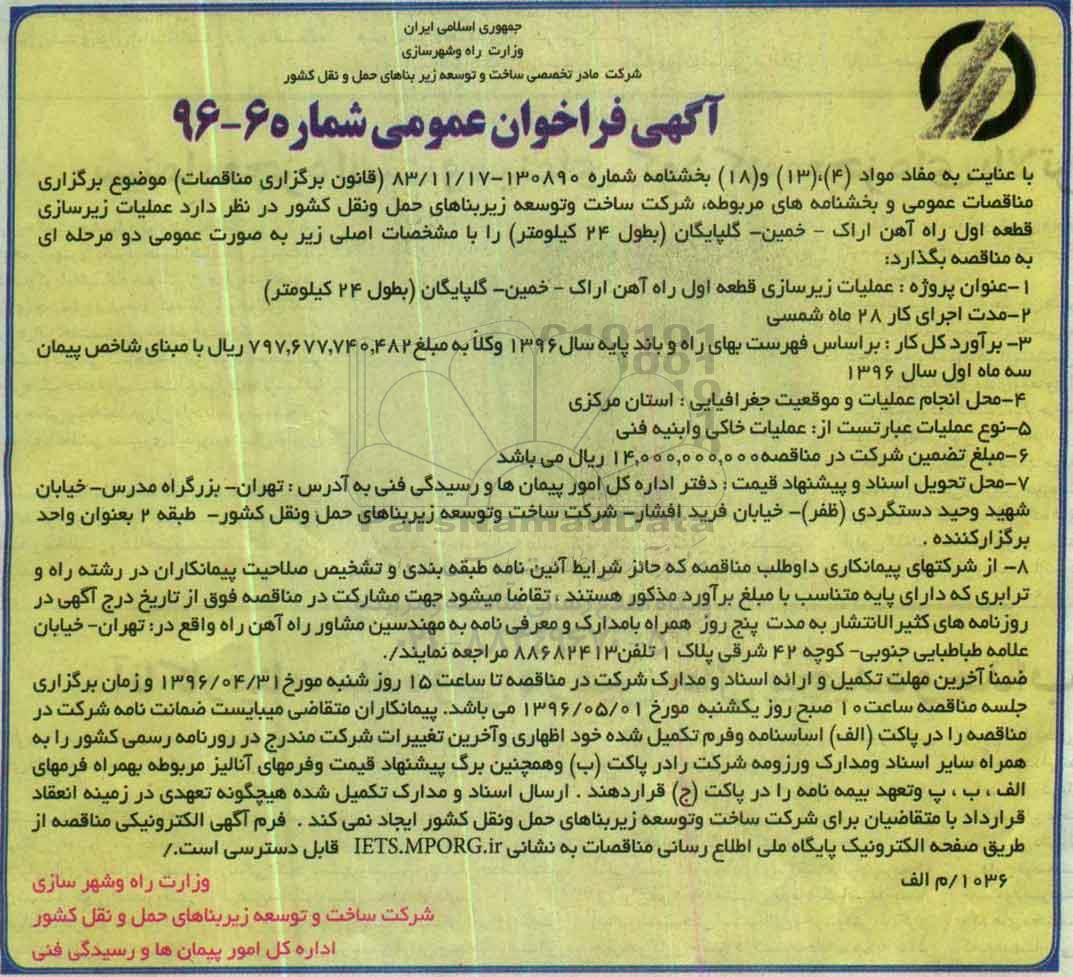 جمهوری اسلامی ایران
وزارت راه وشهرسازی
شرکت مادر تخصصی ساخت و توسعه زیر بناهای حمل و نقل کشور
آگهی فراخوان عمومی شماره ۶-۹۶
با عنایت به مفاد مواد (۴)،(۱۳) و(۱۸) بخشنامه شماره ۱۳۰۸۹۰-۸۳/۱۱/۱۷ (قانون برگزاری مناقصات) موضوع برگزاری
مناقصات عمومی و بخشنامه های مربوطه، شرکت ساخت وتوسعه زیربناهای حمل ونقل کشور در نظر دارد عملیات زیرسازی
قطعه اول راه آهن اراک - خمین- گلپایگان (بطول ۲۴ کیلومتر) را با مشخصات اصلی زیر به صورت عمومی دو مرحله ای
به مناقصه بگذارد:
۱-عنوان پروژه : عملیات زیرسازی قطعه اول راه آهن اراک - خمین- گلپایگان (بطول ۲۴ کیلومتر)
۲-مدت اجرای کار ۲۸ ماه شمسی
۳- برآورد کل کار : براساس فهرست بهای راه و باند پایه سال۱۳۹۶ وکلاً به مبلغ۷۹۷,۶۷۷,۷۴۰,۴۸۲ ریال با مبنای شاخص پیمان
سه ماه اول سال ۱۳۹۶
۴-محل انجام عملیات و موقعیت جغرافیایی : استان مرکزی
۵-نوع عملیات عبارتست از: عملیات خاکی وابنیه فنی
۶-مبلغ تضمین شرکت در مناقصه۱۴,۰۰۰,۰۰۰,۰۰۰ ریال می باشد
۷-محل تحویل اسناد و پیشنهاد قیمت : دفتر اداره کل امور پیمان ها و رسیدگی فنی به آدرس : تهران- بزرگراه مدرس-خیابان
شهید وحید دستگردی (ظفر)- خیابان فرید افشار- شرکت ساخت وتوسعه زیربناهای حمل ونقل کشور- طبقه ۲ بعنوان واحد
برگزارکننده .
۸- از شرکتهای پیمانکاری داوطلب مناقصه که حائز شرایط آئین نامه طبقه بندی و تشخیص صلاحیت پیمانکاران در رشته راه و
ترابری که دارای پایه متناسب با مبلغ برآورد مذکور هستند ، تقاضا میشود جهت مشارکت در مناقصه فوق از تاریخ درج آگهی در
روزنامه های کثیرالانتشار به مدت پنج روز همراه بامدارک و معرفی نامه به مهندسین مشاور راه آهن راه واقع در: تهران- خیابان
علامه طباطبایی جنوبی- کوچه ۴۲ شرقی پلاک ۱ تلفن۸۸۶۸۲۴۱۳ مراجعه نمایند/.
ضمناً آخرین مهلت تکمیل و ارائه اسناد و مدارک شرکت در مناقصه تا ساعت ۱۵ روز شنبه مورخ۱۳۹۶/۰۴/۳۱ و زمان برگزاری
جلسه مناقصه ساعت۱۰ صبح روز یکشنبه مورخ ۱۳۹۶/۰۵/۰۱ می باشد. پیمانکاران متقاضی میبایست ضمانت نامه شرکت در
مناقصه را در پاکت (الف) اساسنامه وفرم تکمیل شده خود اظهاری وآخرین تغییرات شرکت مندرج در روزنامه رسمی کشور را به
همراه سایر اسناد ومدارک ورزومه شرکت رادر پاکت (ب) وهمچنین برگ پیشنهاد قیمت وفرمهای آنالیز مربوطه بهمراه فرمهای
الف ، ب ، پ وتعهد بیمه نامه را در پاکت (ج) قراردهند . ارسال اسناد و مدارک تکمیل شده هیچگونه تعهدی در زمینه انعقاد
قرارداد با متقاضیان برای شرکت ساخت وتوسعه زیربناهای حمل ونقل کشور ایجاد نمی کند . فرم آگهی الکترونیکی مناقصه از
طریق صفحه الکترونیک پایگاه ملی اطلاع رسانی مناقصات به نشانی IETS.MPORG.ir قابل دسترسی است./
۱۰۳۶/م الف
وزارت راه وشهر سازی
شرکت ساخت و توسعه زیربناهای حمل و نقل کشور
اداره کل امور پیمان ها و رسیدگی فنی